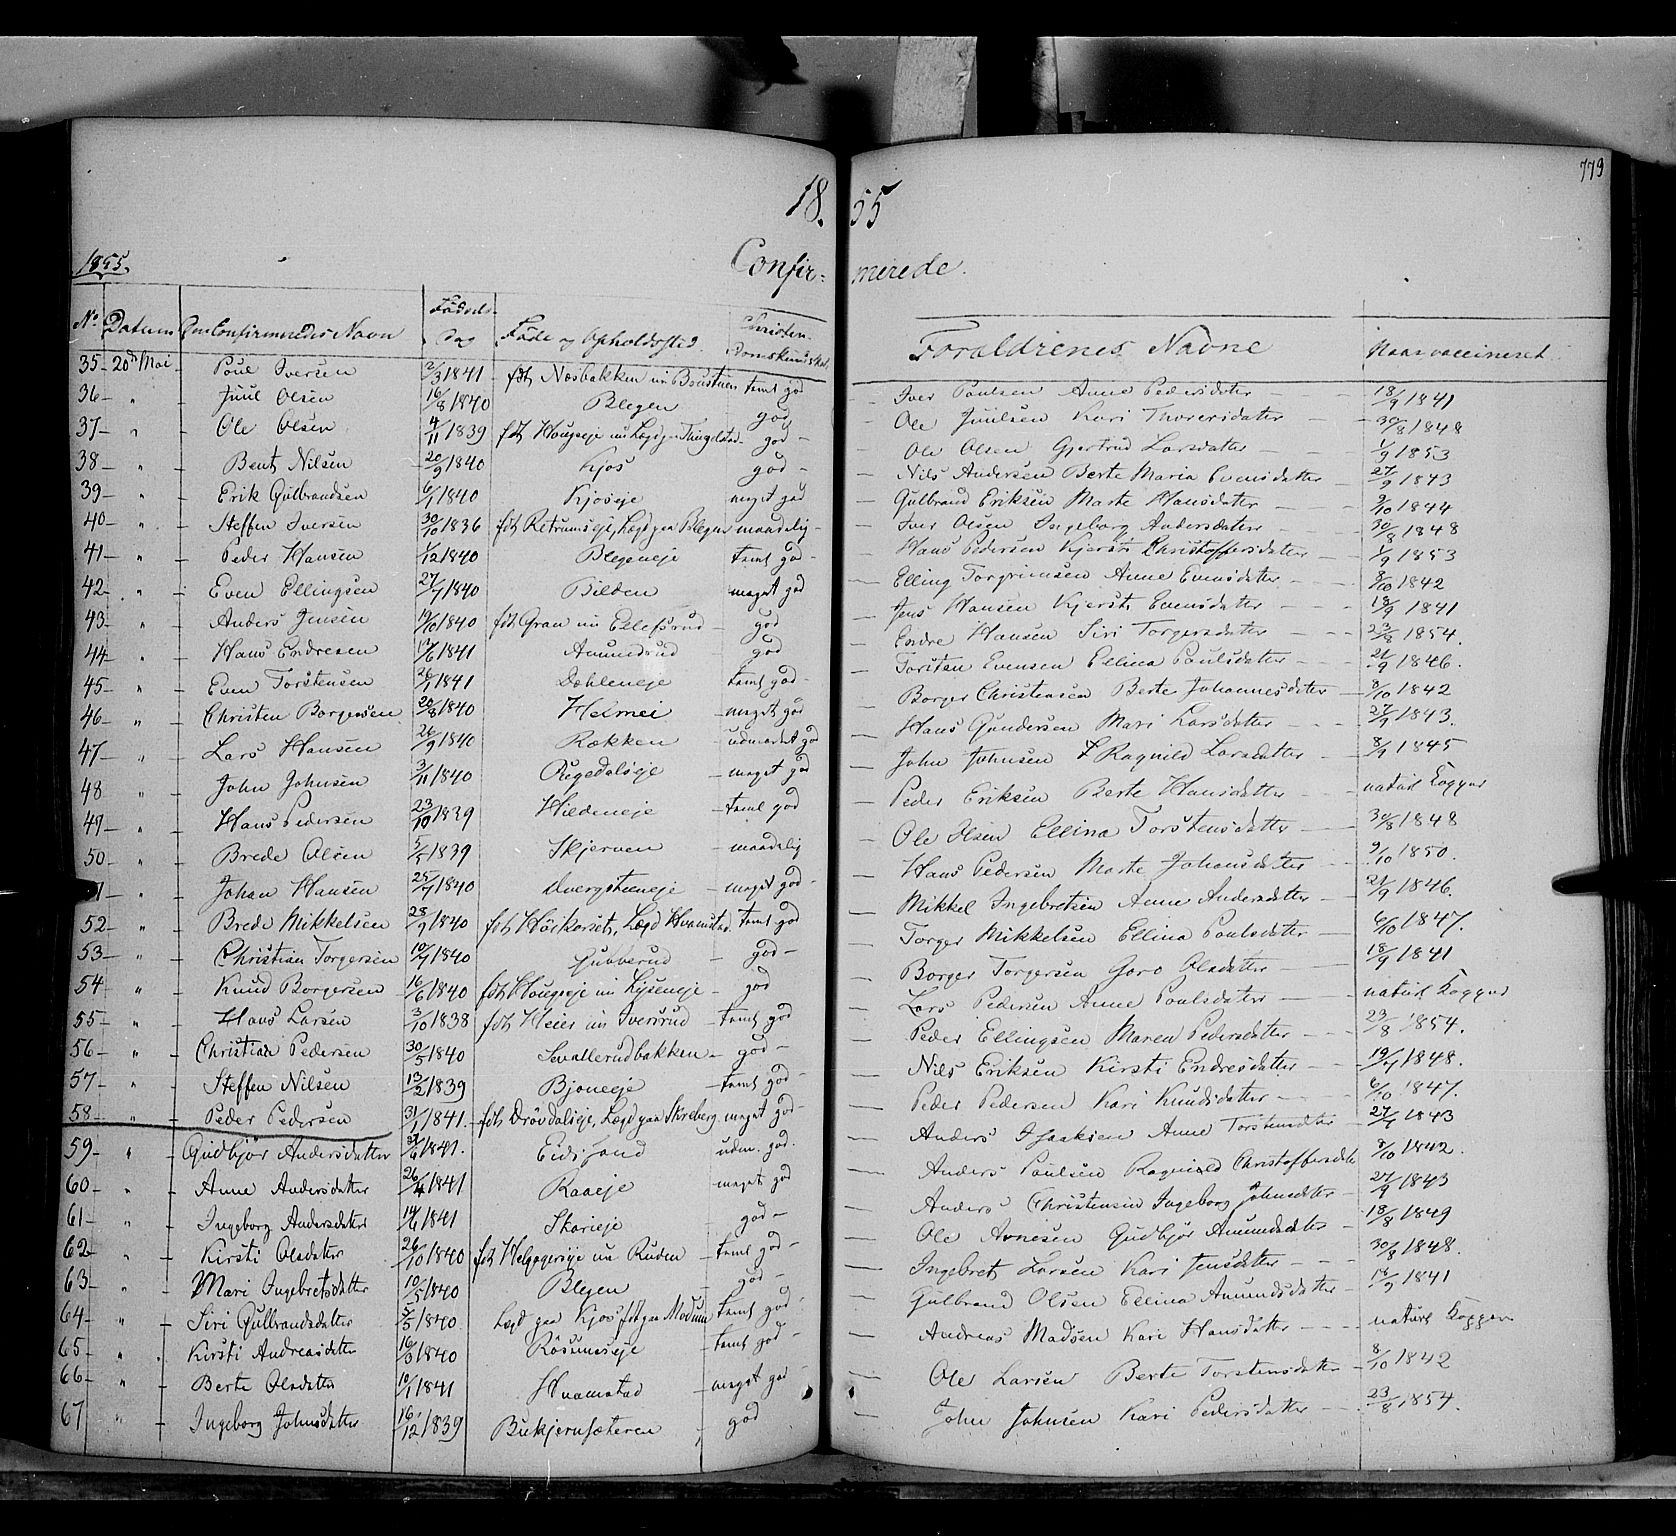 779
18.55
1855. Confir= merede.
No Datum Den Confirmeredes Navn Fødsels- dag Føde og Opholdssted Christen- domskundskab Forældrenes Navne Naar vaccineret
35 20de Mai Poul Iversen 2/3 1841 fdt Næsbakken nu temt god Iver Paulsen Anne Pedersdatter 18/9 1841
36 " Juul Olsen 16/8 1840 Blegen god Ole Juulsen Kari Thoresdatter 30/8 1848
37 " Ole Olsen 4/11 1839 god Ole Olsen Gjertrud Larsdatter 1/9 1853
38 " Bent Nilsen 20/9 1840 Kjos god Nils Andersen Berte Maria Evensdatter 27/9 1843
39 " Erik Gulbrandsen 6/1 1840 Kjoseje meget god Gulbrand Eriksen Marte Hansdatter 9/10 1844
40 " Steffen Iversen 30/10 1836 fdt Retrumseje, Lægd paa Blegen maadelig Iver Olsen Ingeborg Andersdatter 30/8 1848
41 " Peder Hansen 1/12 1840 Blegeneje temt god Hans Pedersen Kjersti Christoffersdatter 1/9 1853
42 " Even Ellingsen 27/7 1840 Bilden meget god Elling Torgrimsen Anne Evensdatter 8/10 1842
43 " Anders Jensen 1840 fdt Gran nu Ellefsrud god Jens Hansen Kjersti Evensdatter 18/9 1841
44 " Hans Endresen 1841 Amundrud god Endre Hansen Siri Torgersdatter 23/8 1854.
45 " Even Torstensen 26/1 1841 Dæhleneje temt god Torsten Evensen Ellina Paulsdatter 21/9 1846.
46 " Christen Borgersen 20/8 1840 Helmei meget god Borger Christensen Berte Johannesdatter 8/10 1842
47 " Lars Hansen 26/9 1840 Rækken udmærket god Hans Gundersen Mari Larsdatter 27/9 1843.
48 " John Johnsen 3/11 1840 Rugedalseje meget god John Johnsen Ragnild Larsdatter 8/9 1845
47 " Hans Pedersen 23/10 1839 Hildeneje temt god Peder Eriksen Berte Hansdatter naturl Kopper
50 " Brede Olsen 5/5 1839 Skjerven maadelig Ole Olsen Ellina Torstensdatter 30/8 1848
51 " Johan Hansen 25/7 1840 Dvergsteneje meget god Hans Pedersen Marte Johansdatter 9/10 1850.
52 " Brede Mikkelsen 28/9 1840 Lægd Hvamstad temt god Mikkel Ingebretsen Anne Andersdatter 21/9 1846.
53 " Christian Torgersen 10/7 1840 Gubberud god Torger Mikkelsen Ellina Paulsdatter 6/10 1847.
54 " Knud Borgersen 16/6 1840 fdt Hougseje nu Lyseneje god Borger Torgersen Goro Olsdatter 18/9 1841
55 " Hans Larsen 3/10 1838 fdt Heier nu Iversrud temt god Lars Pedersen Anne Paulsdatter naturl Kopper
56 " Christian Pedersen 30/5 1840 Smallerudbakken god Peder Ellingsen Maren Pedersdatter 23/8 1854.
57 " Steffen Nilsen 13/2 1839 Bjoneeje temt god Nils Eriksen Kirsti Endresdatter 19/7 1848.
58 " Peder Pedersen 31/1 1841. fdt Drövdalseje, Lægd paa Skreberg meget god Peder Pedersen Kari Knudsdatter 6/10 1847.
59 " Gudbjör Andersdatter 1841. Eidsfand udm. god. Anders Isaaksen Anne Torstensdatter 1843
60 " Anne Andersdatter 26/4 1841 Raaeje meget god Anders Paulsen Ragnild Christoffersdatter 1842.
61 " Ingeborg Andersdatter 14/6 1841 Skarieje god Anders Christensen Ingeborg Johnsdatter 27/9 1843
62 " Kirsti Olsdatter 26/10 1840 nu Ruden temt god Ole Arnesen Gudbjör Amundsdatter 13/8 1849
63 " Mari Ingebretsdatter 10/5 1840 Blegen god Ingebret Larsen Kari Jensdatter 30/8 1848.
64 " Siri Gulbrandsdatter 5/5 1840 Lægd paa Kjos fdt paa Modum temt god Gulbrand Olsen Ellina Amundsdatter 18/9 1841
65 " Kirsti Andreasdatter 1840 Rösumseje temt god Andreas Madsen Kari Hansdatter naturl Kopper
66 " Berte Olsdatter 10/1 1841 Hvamstad meget god Ole Larsen Berte Torstensdatter 8/10 1842
67 " Ingeborg Johnsdatter 16/12 1839 Bukjernsæteren god John Johnsen Kari Pedersdatter 23/8 1854.